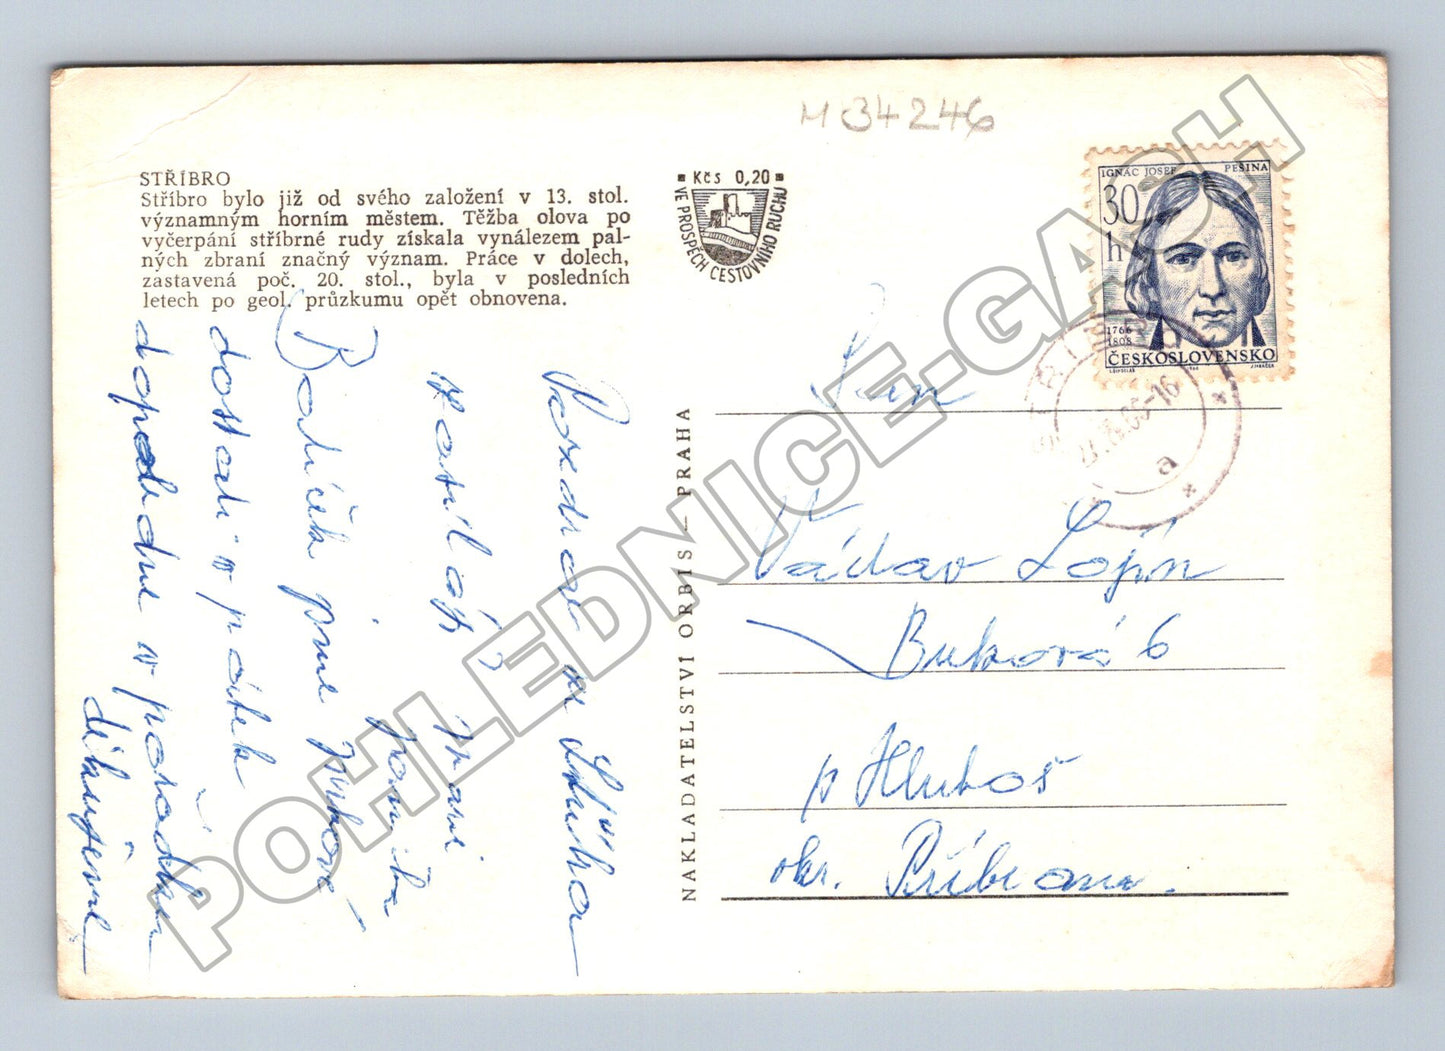 M 34246
STŘÍBRO
Stříbro bylo již od svého založení v 13. stol.
významným horním městem. Těžba olova po
vyčerpání stříbrné rudy získala vynálezem pal-
ných zbraní značný význam. Práce v dolech,
zastavená poč. 20. stol., byla v posledních
letech po geol. průzkumu opět obnovena.
Kčs 0,20
VE PROSPĚCH CESTOVNÍHO RUCHU
IGNÁC JOSEF PEŠINA
30
h
1766
1808
ČESKOSLOVENSKO
Pozdrav ze Stříbra
zasílají
Balíček jsme
dostali v pátek
dopoledne v pořádku
děkujeme
NAKLADATELSTVÍ ORBIS – PRAHA
Pan
Václav
Buková 6
p Hluboš
okr. Příbram.
a
POHLEDNICE-GACH